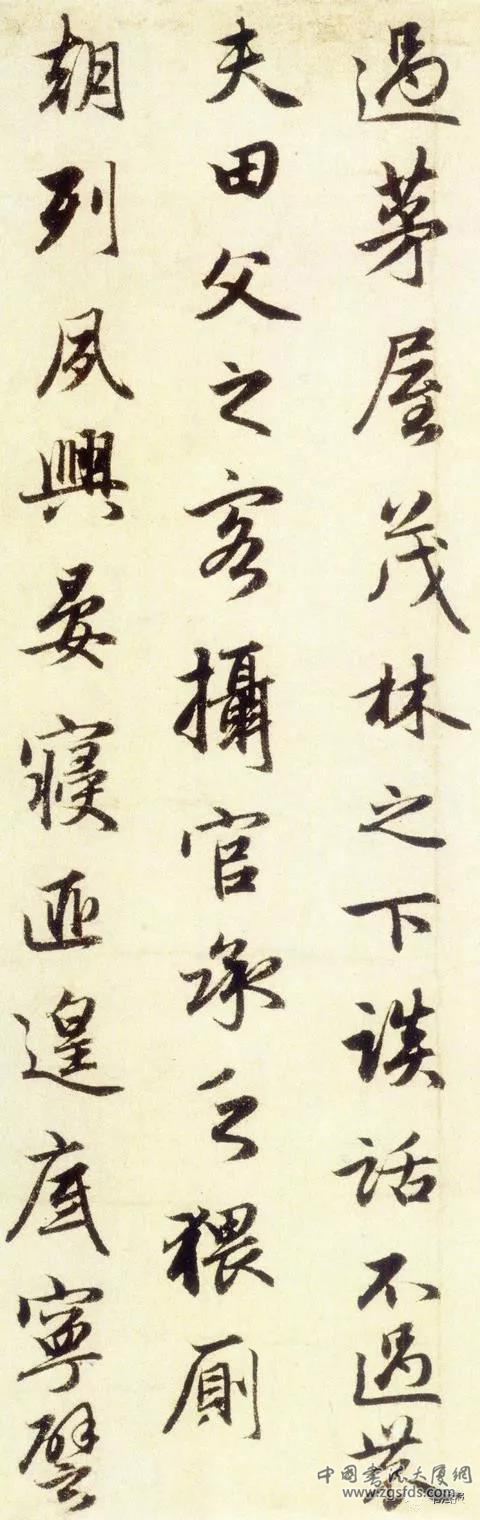 過茅屋茂林之下談話不過農
夫田父之客攝官承乏猥厠
朝列夙興晏寢匪遑底寧譬
中國書法大厦網
www.zgsfds.com